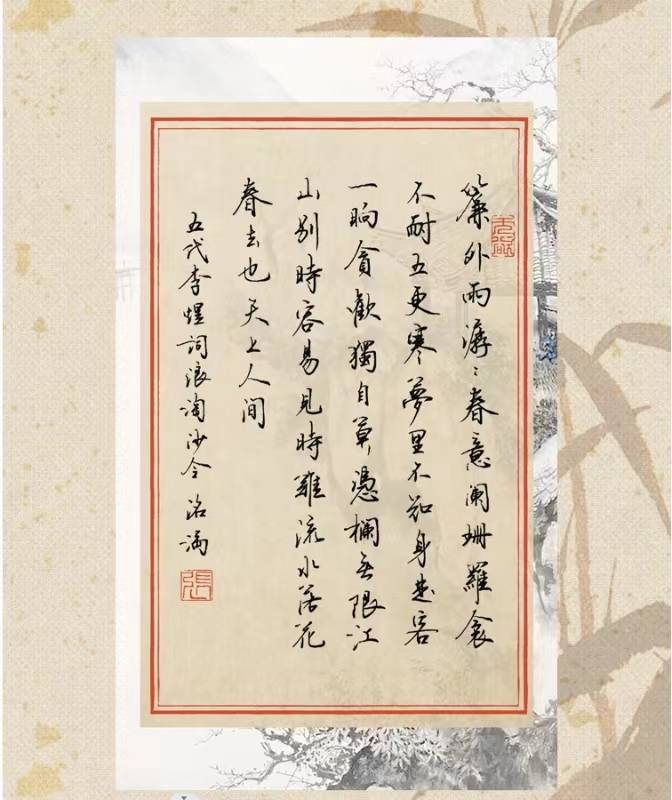 簾外雨潺潺春意阑珊羅衾
不耐五更寒夢里不知身是客
一晌貪歡獨自莫憑欄無限江
山别時容易見時難流水落花
春去也天上人间
五代李煜词浪淘沙令洺滴
張